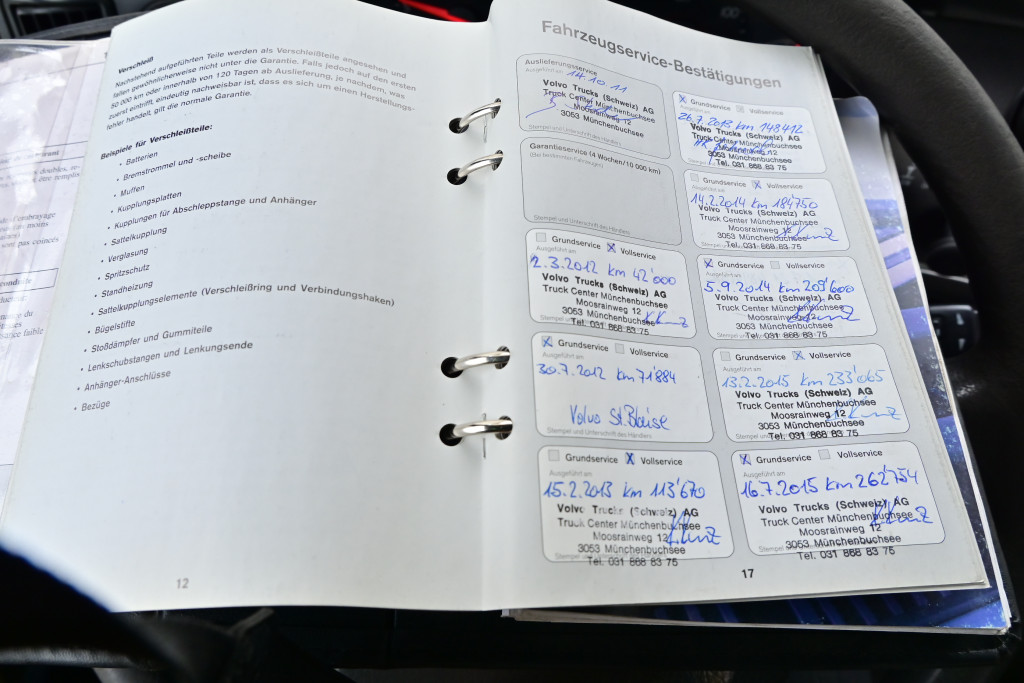 Verschleiß
Nachstehend aufgeführten Teile werden als Verschleißteile angesehen und
fallen gewöhnlicherweise nicht unter die Garantie. Falls jedoch auf den ersten
50 000 km oder innerhalb von 120 Tagen ab Auslieferung, je nachdem, was
zuerst eintrifft, eindeutig nachweisbar ist, dass es sich um einen Herstellungs-
fehler handelt, gilt die normale Garantie.
Beispiele für Verschleißteile:
• Batterien
• Bremstrommel und -scheibe
• Muffen
• Kupplungsplatten
• Kupplungen für Abschleppstange und Anhänger
• Sattelkupplung
• Verglasung
• Spritzschutz
• Standheizung
• Sattelkupplungselemente (Verschleißring und Verbindungshaken)
• Bügelstifte
• Stoßdämpfer und Gummiteile
• Lenkschubstangen und Lenkungsende
• Anhänger-Anschlüsse
• Bezüge
12
Fahrzeugservice-Bestätigungen
Auslieferungsservice
Ausgeführt am
14.10.11
Volvo Trucks (Schweiz) AG
Truck Center Münchenbuchsee
Moosrainweg 12
3053 Münchenbuchsee
Stempel und Unterschrift des Händlers
Garantieservice (4 Wochen/10 000 km)
(Bei bestimmten Fahrzeugen)
Stempel und Unterschrift des Händlers
Grundservice X Vollservice
Ausgeführt am
2.3.2012 km 42'000
Volvo Trucks (Schweiz) AG
Truck Center Münchenbuchsee
Moosrainweg 12
3053 Münchenbuchsee
Tel. 031 868 83 75
X Grundservice Vollservice
Ausgeführt am
30.7.2012 km 71'884
Volvo St.Blaise
Stempel und Unterschrift des Händlers
Grundservice X Vollservice
Ausgeführt am
15.2.2013 km 113'670
Volvo Trucks (Schweiz) AG
Truck Center Münchenbuchsee
Moosrainweg 12
3053 Münchenbuchsee
Tel. 031 868 83 75
X Grundservice Vollservice
Ausgeführt am
26.7.2013 km 148412
Volvo Trucks (Schweiz) AG
Truck Center Münchenbuchsee
3053 Münchenbuchsee
Tel. 031 868 83 75
Grundservice X Vollservice
Ausgeführt am
14.2.2014 km 184'750
Volvo Trucks (Schweiz) AG
Truck Center Münchenbuchsee
Moosrainweg 12
3053 Münchenbuchsee
Tel. 031 868 83 75
X Grundservice Vollservice
Ausgeführt am
5.9.2014 km 209'600
Volvo Trucks (Schweiz) AG
Truck Center Münchenbuchsee
Moosrainweg 12
3053 Münchenbuchsee
Tel. 031 868 83 75
Grundservice X Vollservice
Ausgeführt am
13.2.2015 km 233'065
Volvo Trucks (Schweiz) AG
Truck Center Münchenbuchsee
Moosrainweg 12
3053 Münchenbuchsee
Tel. 031 868 83 75
X Grundservice Vollservice
Ausgeführt am
16.7.2015 km 262'754
Volvo Trucks (Schweiz) AG
Truck Center Münchenbuchsee
Moosrainweg 12
3053 Münchenbuchsee
Tel. 031 868 83 75
17